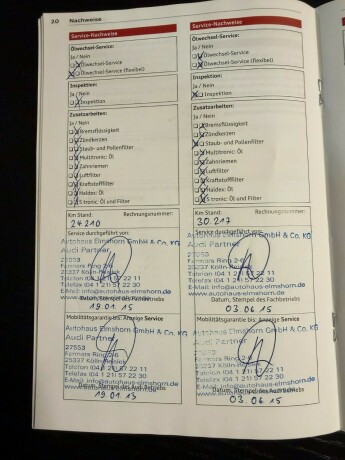 20 Nachweise
Service-Nachweise
Ölwechsel-Service:
Ja / Nein
Ölwechsel-Service
Ölwechsel-Service (flexibel)
Inspektion:
Ja / Nein
Inspektion
Zusatzarbeiten:
Ja / Nein
Bremsflüssigkeit
Zündkerzen
Staub- und Pollenfilter
Multitronic: Öl
Zahnriemen
Luftfilter
Kraftstofffilter
Haldex: Öl
S tronic: Öl und Filter
Km Stand: Rechnungsnummer:
24210
Service durchgeführt von:
Autohaus Elmshorn GmbH & Co. KG
Audi Partner
27553
Farmers Ring 2-6
25337 Kölln-Reisiek
Telefon (04 1 21) 57 22 11
Telefax (04 1 21) 57 22 30
E-Mail: info@autohaus-elmshorn.de
www.autohaus-elmshorn.de
Datum, Stempel des Fachbetriebs
19 01 15
Mobilitätsgarantie bis: Anzeige Service
Autohaus Elmshorn GmbH & Co. KG
Audi Partner
27553
Ring 2-6
25337 Kölln-Reisiek
Telefon (04 1 21) 57 22 11
Telefax (04 1 21) 57 22 30
E-Mail: info@autohaus-elmshorn.de
www.autohaus-elmshorn.de
Datum, Stempel des Audi Betriebs
Service-Nachweise
Ölwechsel-Service:
Ja / Nein
Ölwechsel-Service
Ölwechsel-Service (flexibel)
Inspektion:
Ja / Nein
Inspektion
Zusatzarbeiten:
Ja / Nein
Bremsflüssigkeit
Zündkerzen
Staub- und Pollenfilter
Multitronic: Öl
Zahnriemen
Luftfilter
Kraftstofffilter
Haldex: Öl
S tronic: Öl und Filter
Km Stand: Rechnungsnummer:
30.217
Service durchgeführt von:
Autohaus Elmshorn GmbH & Co. KG
Audi Partner
27553
Ring 2-6
25337 Kölln-Reisiek
Telefon (04 1 21) 57 22 11
Telefax (04 1 21) 57 22 30
E-Mail: info@autohaus-elmshorn.de
www.autohaus-elmshorn.de
Datum, Stempel des Fachbetriebs
03 06 15
Mobilitätsgarantie bis: Anzeige Service
Autohaus Elmshorn GmbH & Co. KG
Audi Partner
27553
Ring 2-6
25337 Kölln-Reisiek
Telefon (04 1 21) 57 22 11
Telefax (04 1 21) 57 22 30
E-Mail: info@autohaus-elmshorn.de
www.autohaus-elmshorn.de
Datum, Stempel des Audi Betriebs
03 06 15